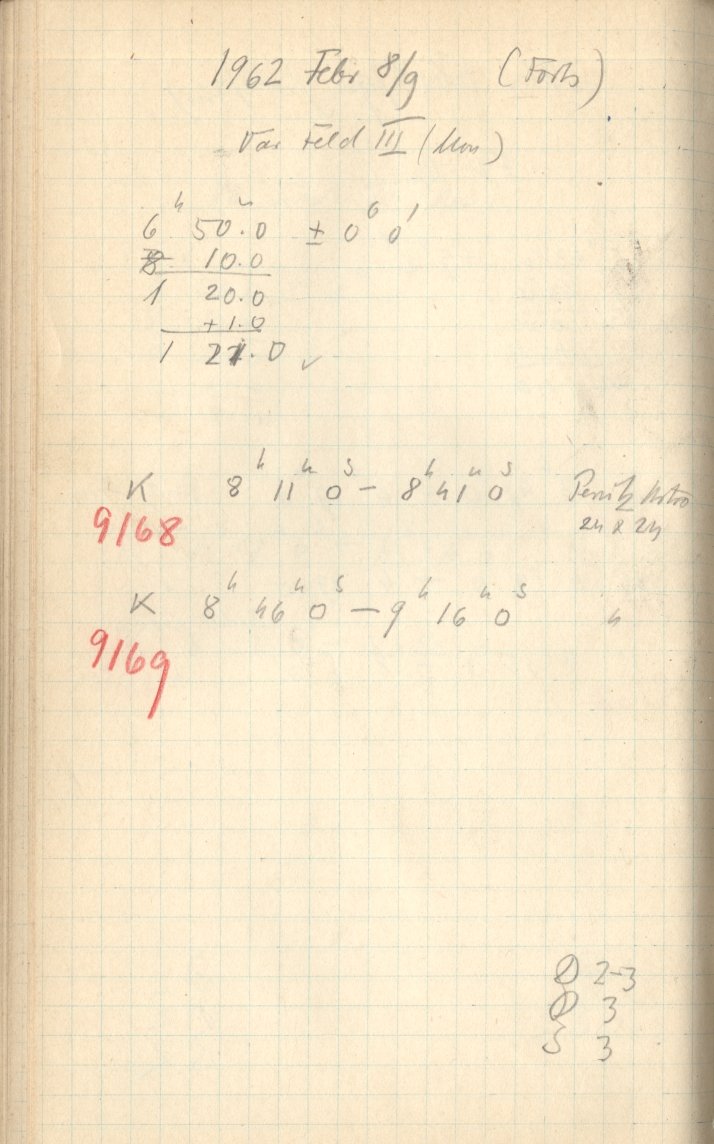 1962 Febr 8/9 (Forts)
Var Feld III (Mon)
6h 50.m0 ± 0° 0'
8 10.0
1 20.0
+1.0
1 21.0 ✓
K 8h 11m 0s – 8h 41m 0s Perutz Astro
9168 24 x 24
K 8h 46m 0s – 9h 16m 0s "
9169
D 2-3
D 3
S 3